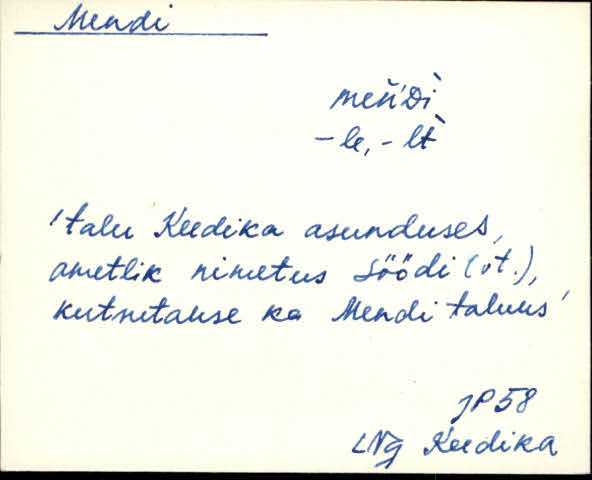 Mendi
meńDì
-le, -lt
'talu Keedika asunduses,
ametlik nimetus Söödi (vt.),
kutsutakse ka Mendi taluks'
JP 58
LNg Keedika